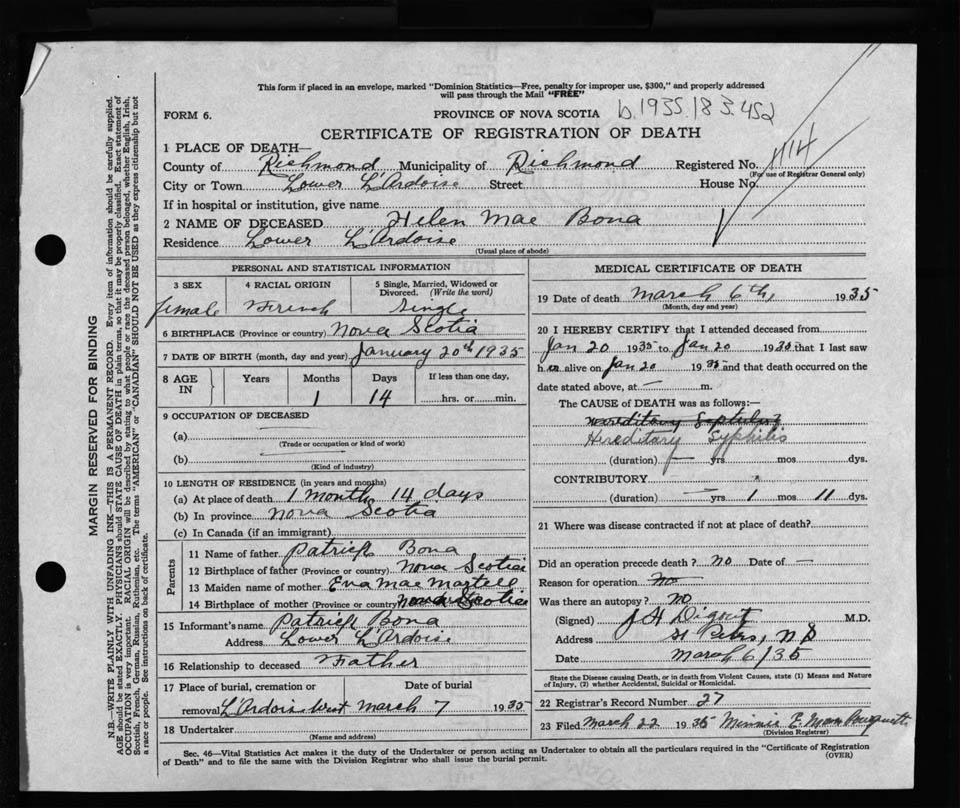 This form if placed in an envelope, marked "Dominion Statistics—Free, penalty for improper use, $300," and properly addressed
will pass through the Mail "FREE"
b.1935/83.452
FORM 6.
PROVINCE OF NOVA SCOTIA
CERTIFICATE OF REGISTRATION OF DEATH
1 PLACE OF DEATH—
County of Richmond, Municipality of Richmond Registered No. 1114
(For use of Registrar General only)
City or Town Lower L'Ardoise Street House No.
If in hospital or institution, give name
2 NAME OF DECEASED Helen Mae Bona
Residence Lower L'Ardoise
(Usual place of abode)
PERSONAL AND STATISTICAL INFORMATION
3 SEX 4 RACIAL ORIGIN 5 Single, Married, Widowed or
Divorced. (Write the word)
female French Single
6 BIRTHPLACE (Province or country) Nova Scotia
7 DATE OF BIRTH (month, day and year) January 20th 1935
8 AGE IN Years Months Days If less than one day,
1 14 hrs. or min.
9 OCCUPATION OF DECEASED
(a)
(Trade or occupation or kind of work)
(b)
(Kind of industry)
10 LENGTH OF RESIDENCE (in years and months)
(a) At place of death 1 month 14 days
(b) In province Nova Scotia
(c) In Canada (if an immigrant)
Parents
11 Name of father Patrick Bona
12 Birthplace of father (Province or country) Nova Scotia
13 Maiden name of mother Eva Mae Martell
14 Birthplace of mother (Province or country) Nova Scotia
15 Informant's name Patrick Bona
Address Lower L'Ardoise
16 Relationship to deceased Father
17 Place of burial, cremation or Date of burial
removal L'Ardoise West March 7 1935
18 Undertaker
(Name and address)
MEDICAL CERTIFICATE OF DEATH
19 Date of death March 6th, 1935
(Month, day and year)
20 I HEREBY CERTIFY that I attended deceased from
Jan 20 1935 to Jan 20 1935 that I last saw
h er alive on Jan 20 1935 and that death occurred on the
date stated above, at — m.
The CAUSE of DEATH was as follows:—
Hereditary Syphilis
Hereditary Syphilis
(duration) — yrs. mos. dys.
CONTRIBUTORY
(duration) — yrs. 1 mos. 11 dys.
21 Where was disease contracted if not at place of death?
Did an operation precede death? no Date of —
Reason for operation no
Was there an autopsy? No
(Signed) J A Digout M.D.
Address St Peters, N S
Date March 6/35
State the Disease causing Death, or in death from Violent Causes, state (1) Means and Nature
of Injury, (2) whether Accidental, Suicidal or Homicidal.
22 Registrar's Record Number 27
23 Filed March 22 1935 Minnie E.
(Division Registrar)
Sec. 46—Vital Statistics Act makes it the duty of the Undertaker or person acting as Undertaker to obtain all the particulars required in the "Certificate of Registration
of Death" and to file the same with the Division Registrar who shall issue the burial permit.
(OVER)
MARGIN RESERVED FOR BINDING
N.B.—WRITE PLAINLY WITH UNFADING INK—THIS IS A PERMANENT RECORD. Every item of information should be carefully supplied.
AGE should be stated EXACTLY. PHYSICIANS should STATE CAUSE OF DEATH in plain terms, so that it may be properly classified. Exact statement of
OCCUPATION is very important. RACIAL ORIGIN will be described by stating to what people or race the deceased person belonged, whether English, Irish,
Scottish, French, German, Russian, Ruthenian, etc. The terms "AMERICAN" or "CANADIAN" SHOULD NOT BE USED as they express citizenship but not
a race or people. See instructions on back of certificate.